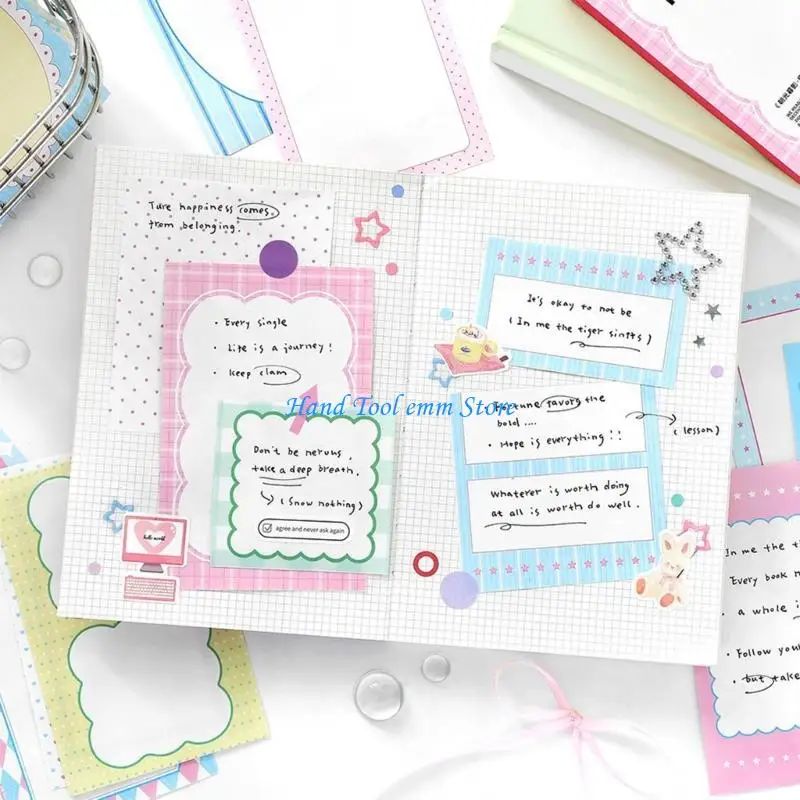 Ture happiness comes.
from belonging.
• Every single
• Life is a journey!
• keep clam
Don't be nervus,
take a deep breath.
(Snow nothing)
agree and never ask again
hello world
It's okay to not be
(In me the tiger sinffs)
Fortune favors the
bold ....
• Hope is everything!!
(lesson)
Whaterer is worth doing
at all is worth do well.
Hand Tool emm Store
In me the
Every book
• a whole
• Follow you
• but take